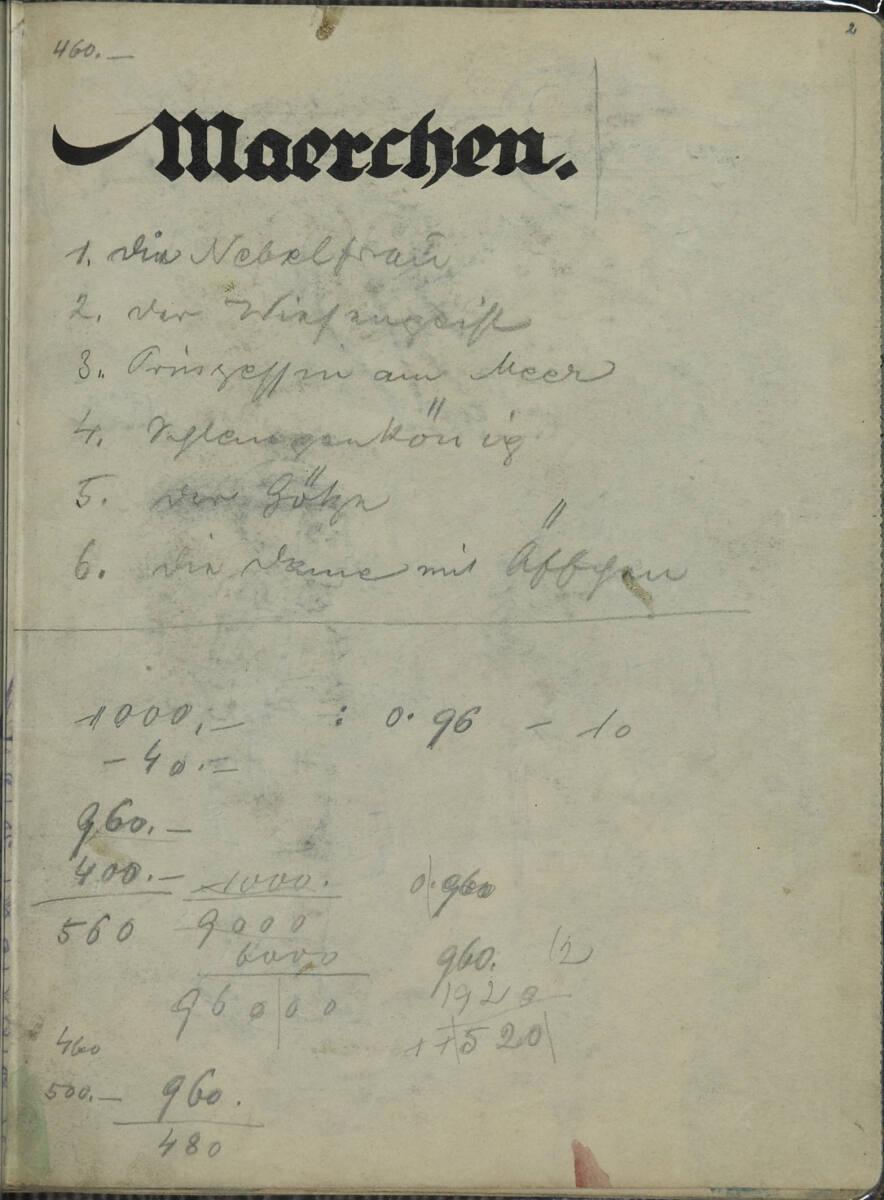 2
460.—
Maerchen.
1. die Nebelfrau
2. der Wiesengeist
3. Prinzessin am Meer
4. Schlangenkönig
5. der Götze
6. die Dame mit Äffchen
1000.— : 0.96 – 10
– 40.—
960.—
400.— 1000. 0.960
560 9000
6000 960. 12
960 00 1920
11520
460
500.— 960.
480